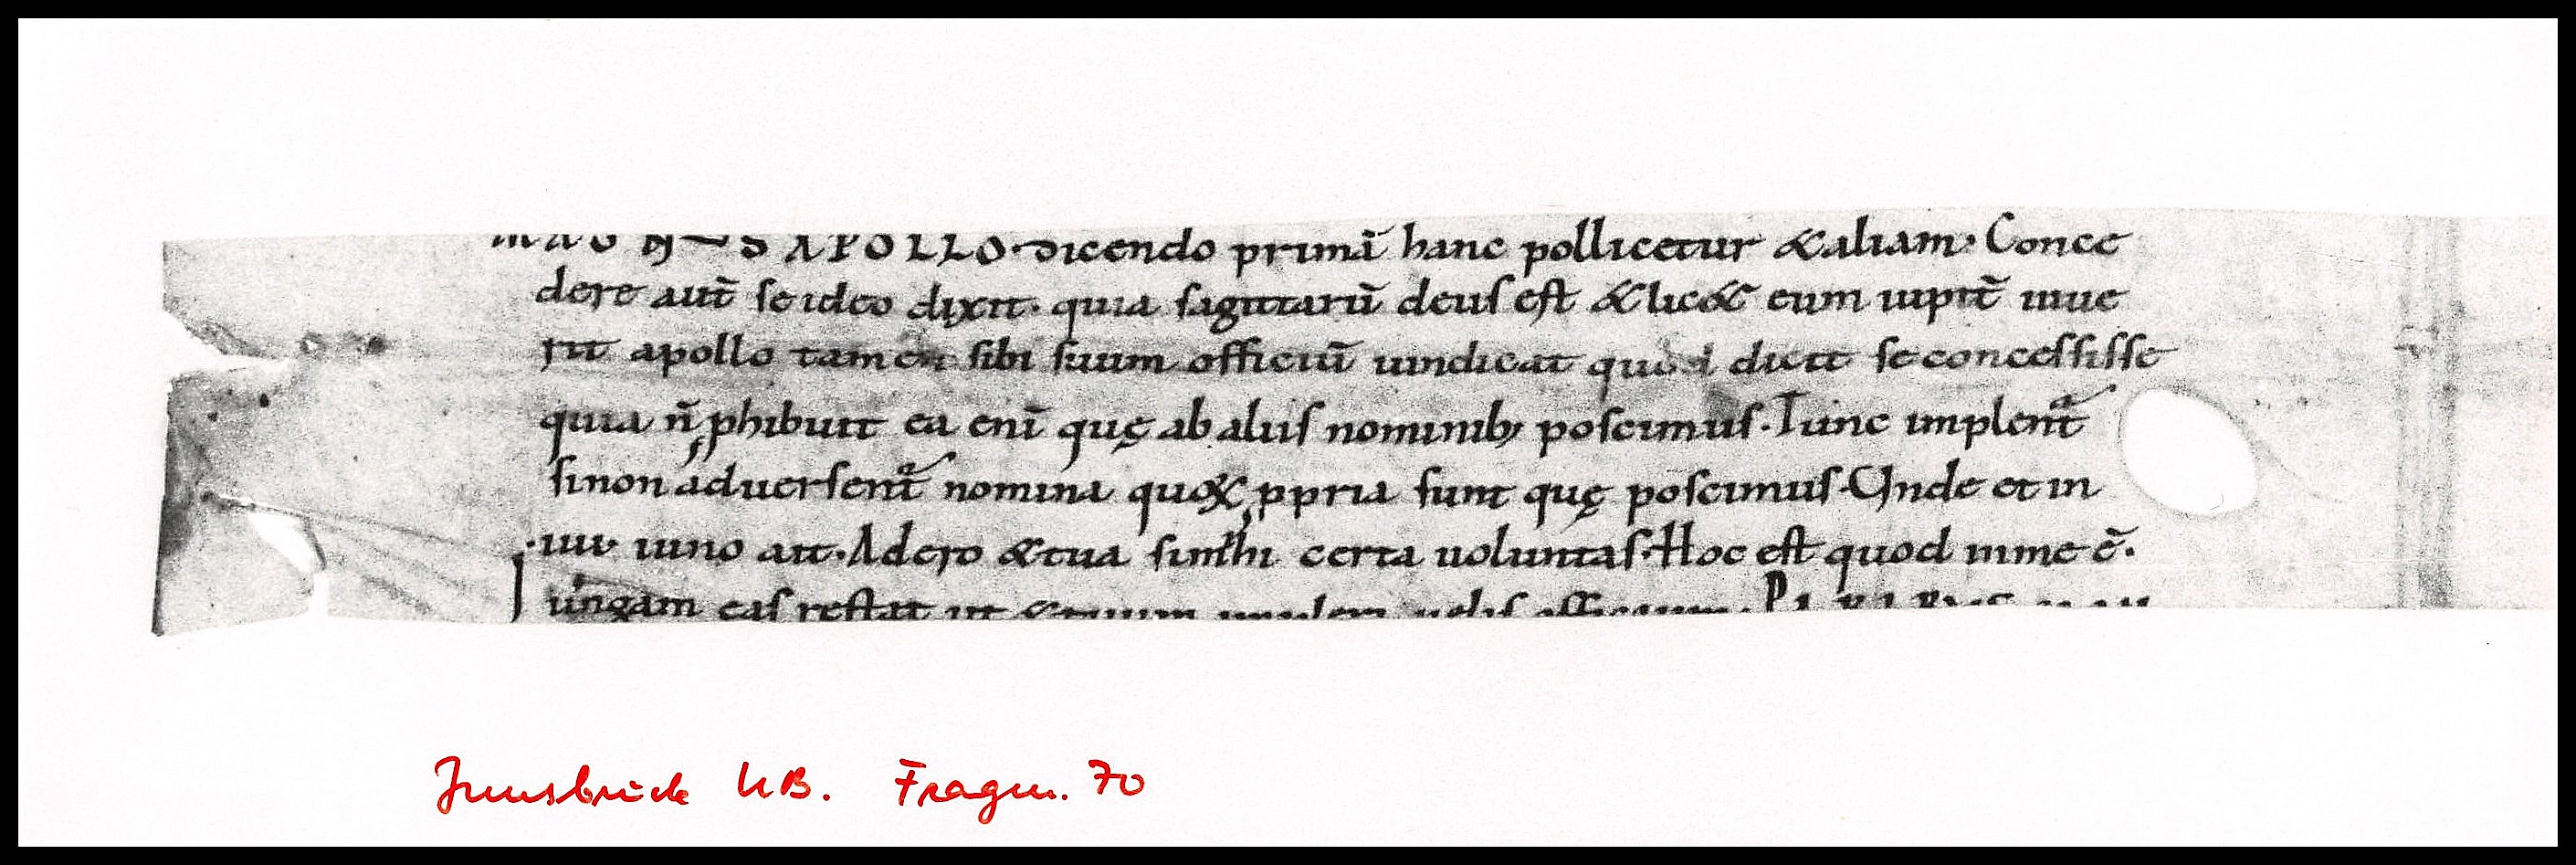 MAGNUS APOLLO· dicendo primā hanc pollicetur &aliam· Conce
dere aut̄ se ideo dixit· quia sagittarū deus est &lic& eum iupit̄ iuue
rit apollo tamen sibi suum officiū uindicat quod dicit se concessisse
quia n̄ ꝓhibuit ea enī quę ab aliis nominib; poscimus· Tunc implent᷑
si non aduersent᷑ nomina quoꝝ ꝓpria sunt quę poscimus· Vnde et in
·iiii· iuno ait· Adero &tua si mihi certa uoluntas· Hoc est quod in me ē·
Iungam eas restat ut &tuum
Innsbruck UB. Fragm. 70